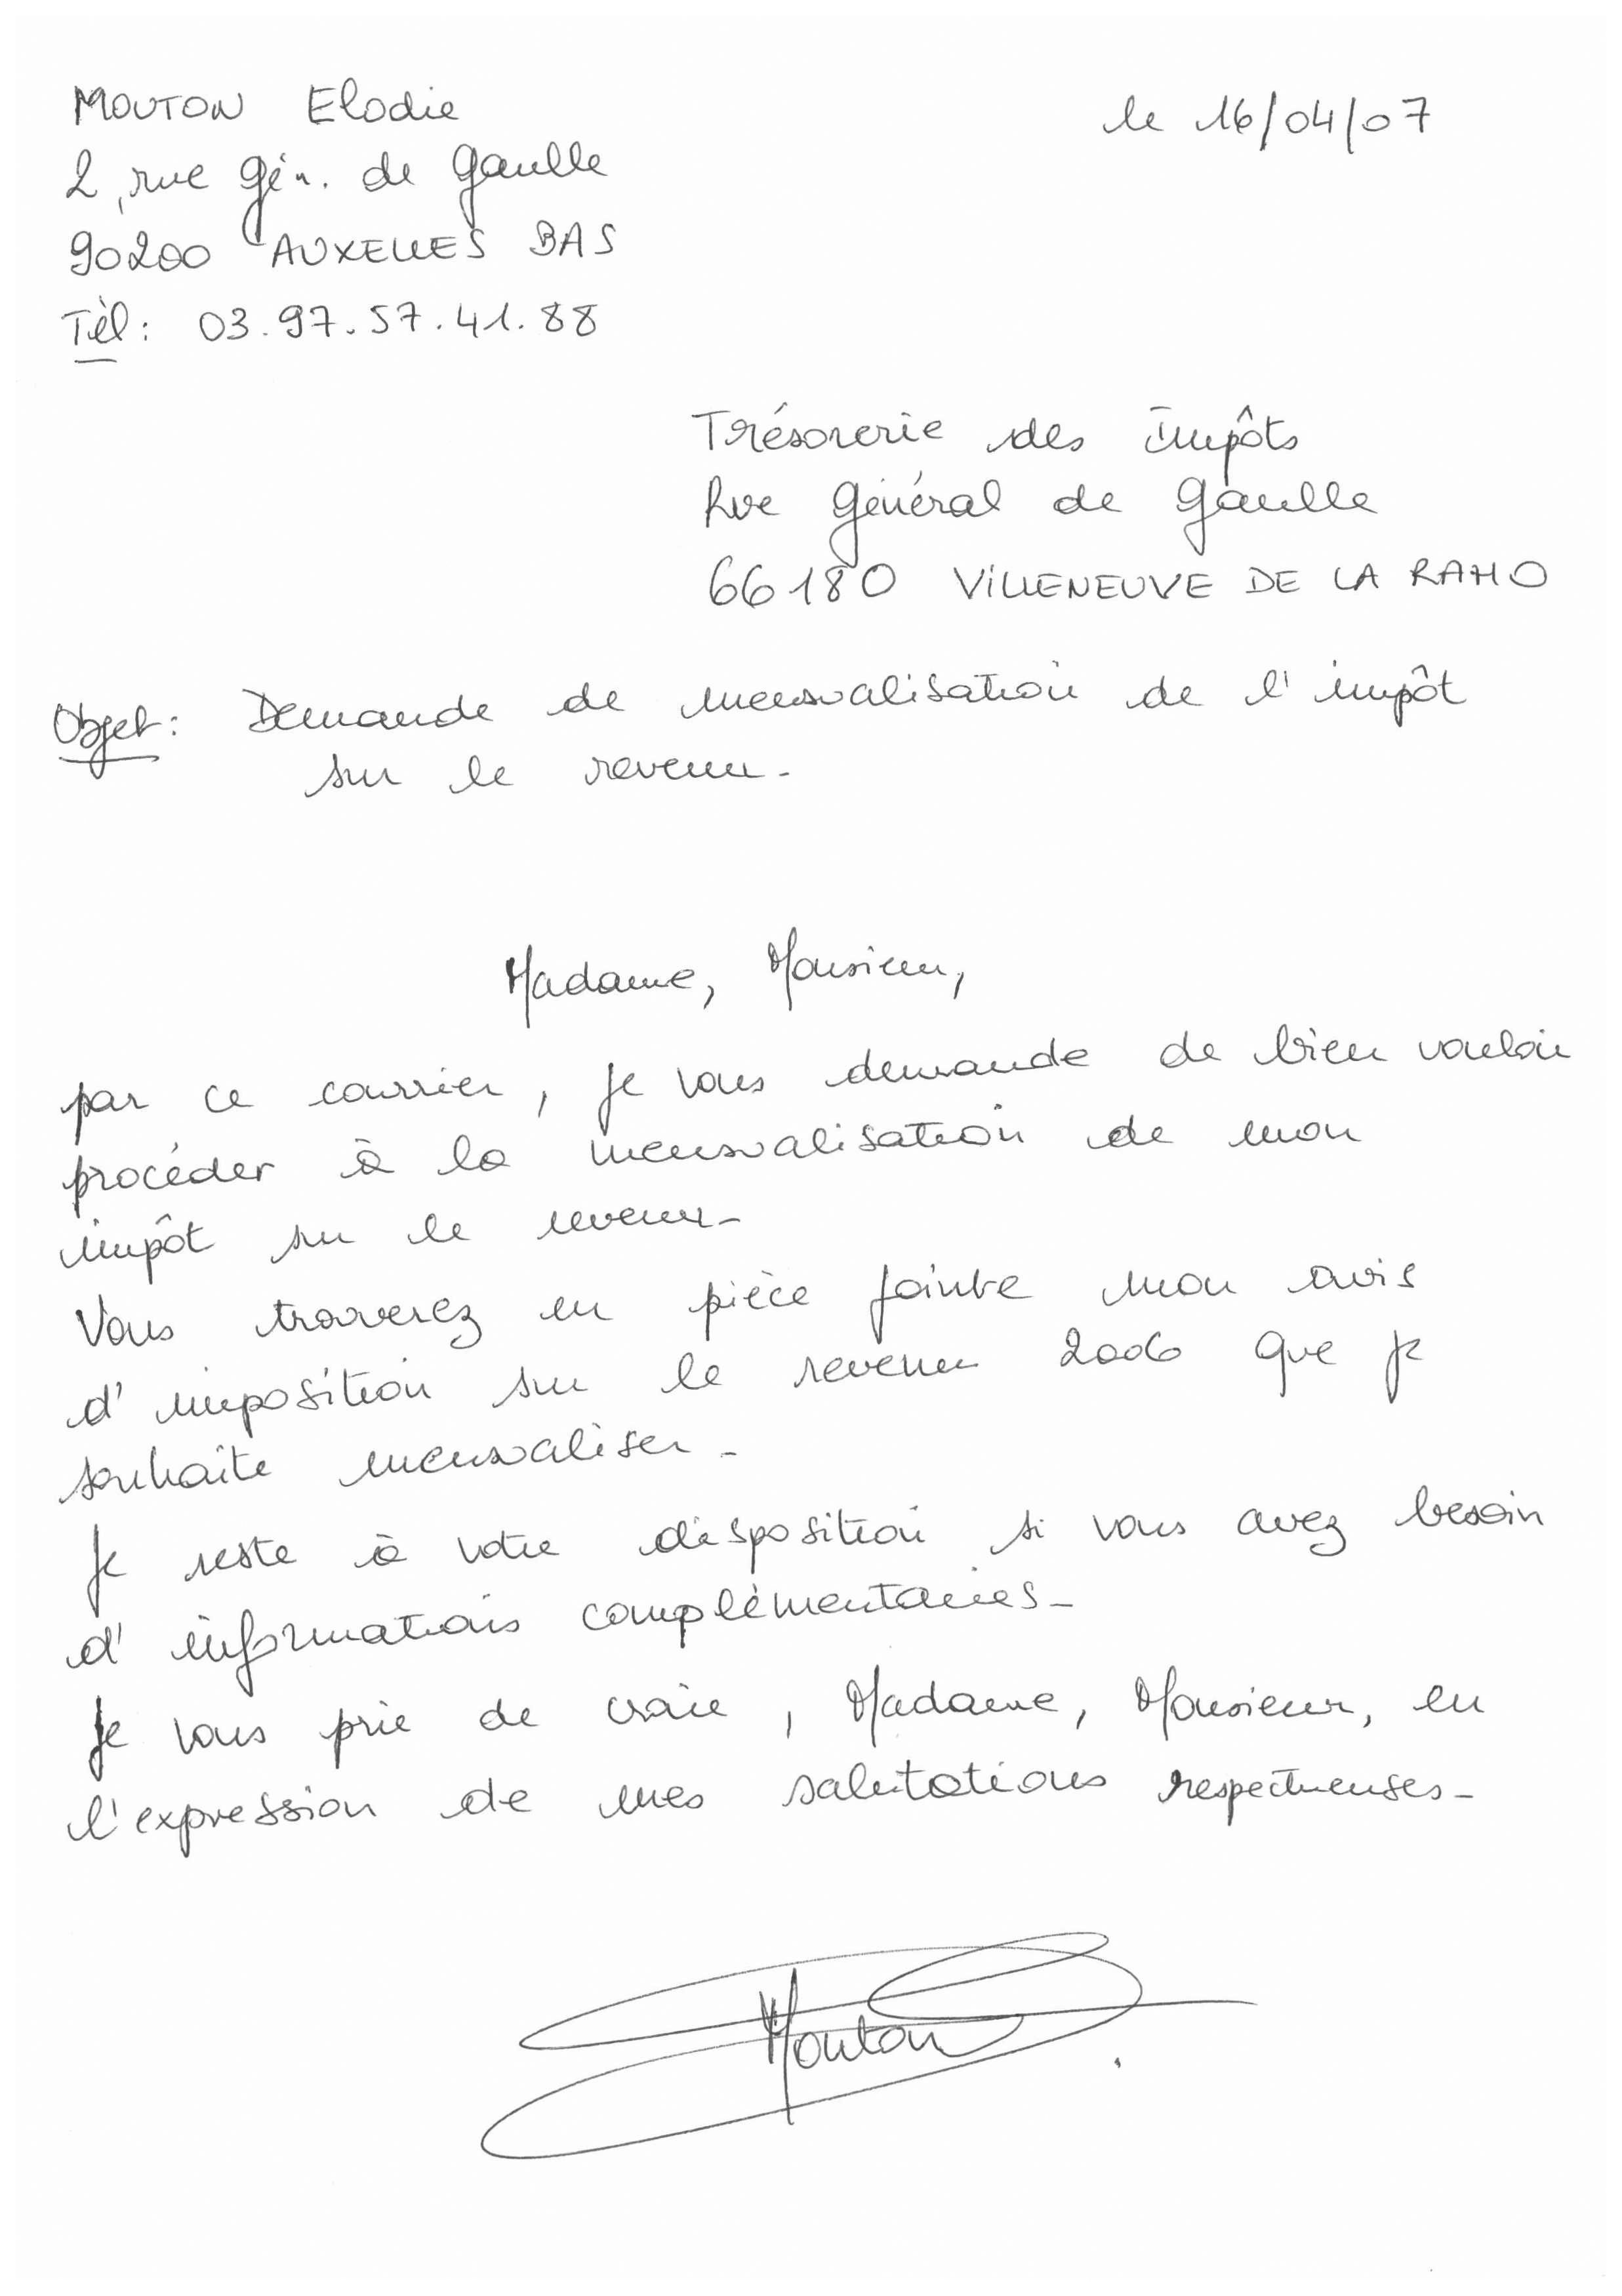 MOUTON Elodie
le 16/04/07
2, rue Gén. de Gaulle
90200 AUXELLES BAS
Tèl: 03.97.57.41.88
Trésorerie des Impôts
Rue Général de Gaulle
66180 VILLENEUVE DE LA RAHO
Objet: Demande de mensualisation de l'impôt
sur le revenu.
Madame, Monsieur,
par ce courrier, je vous demande de bien vouloir
procéder à la mensualisation de mon
impôt sur le revenu.
Vous trouverez en pièce jointe mon avis
d'imposition sur le revenu 2006 que je
souhaite mensualiser.
Je reste à votre disposition si vous avez besoin
d'informations complémentaires.
Je vous prie de croire, Madame, Monsieur, en
l'expression de mes salutations respectueuses.
Mouton